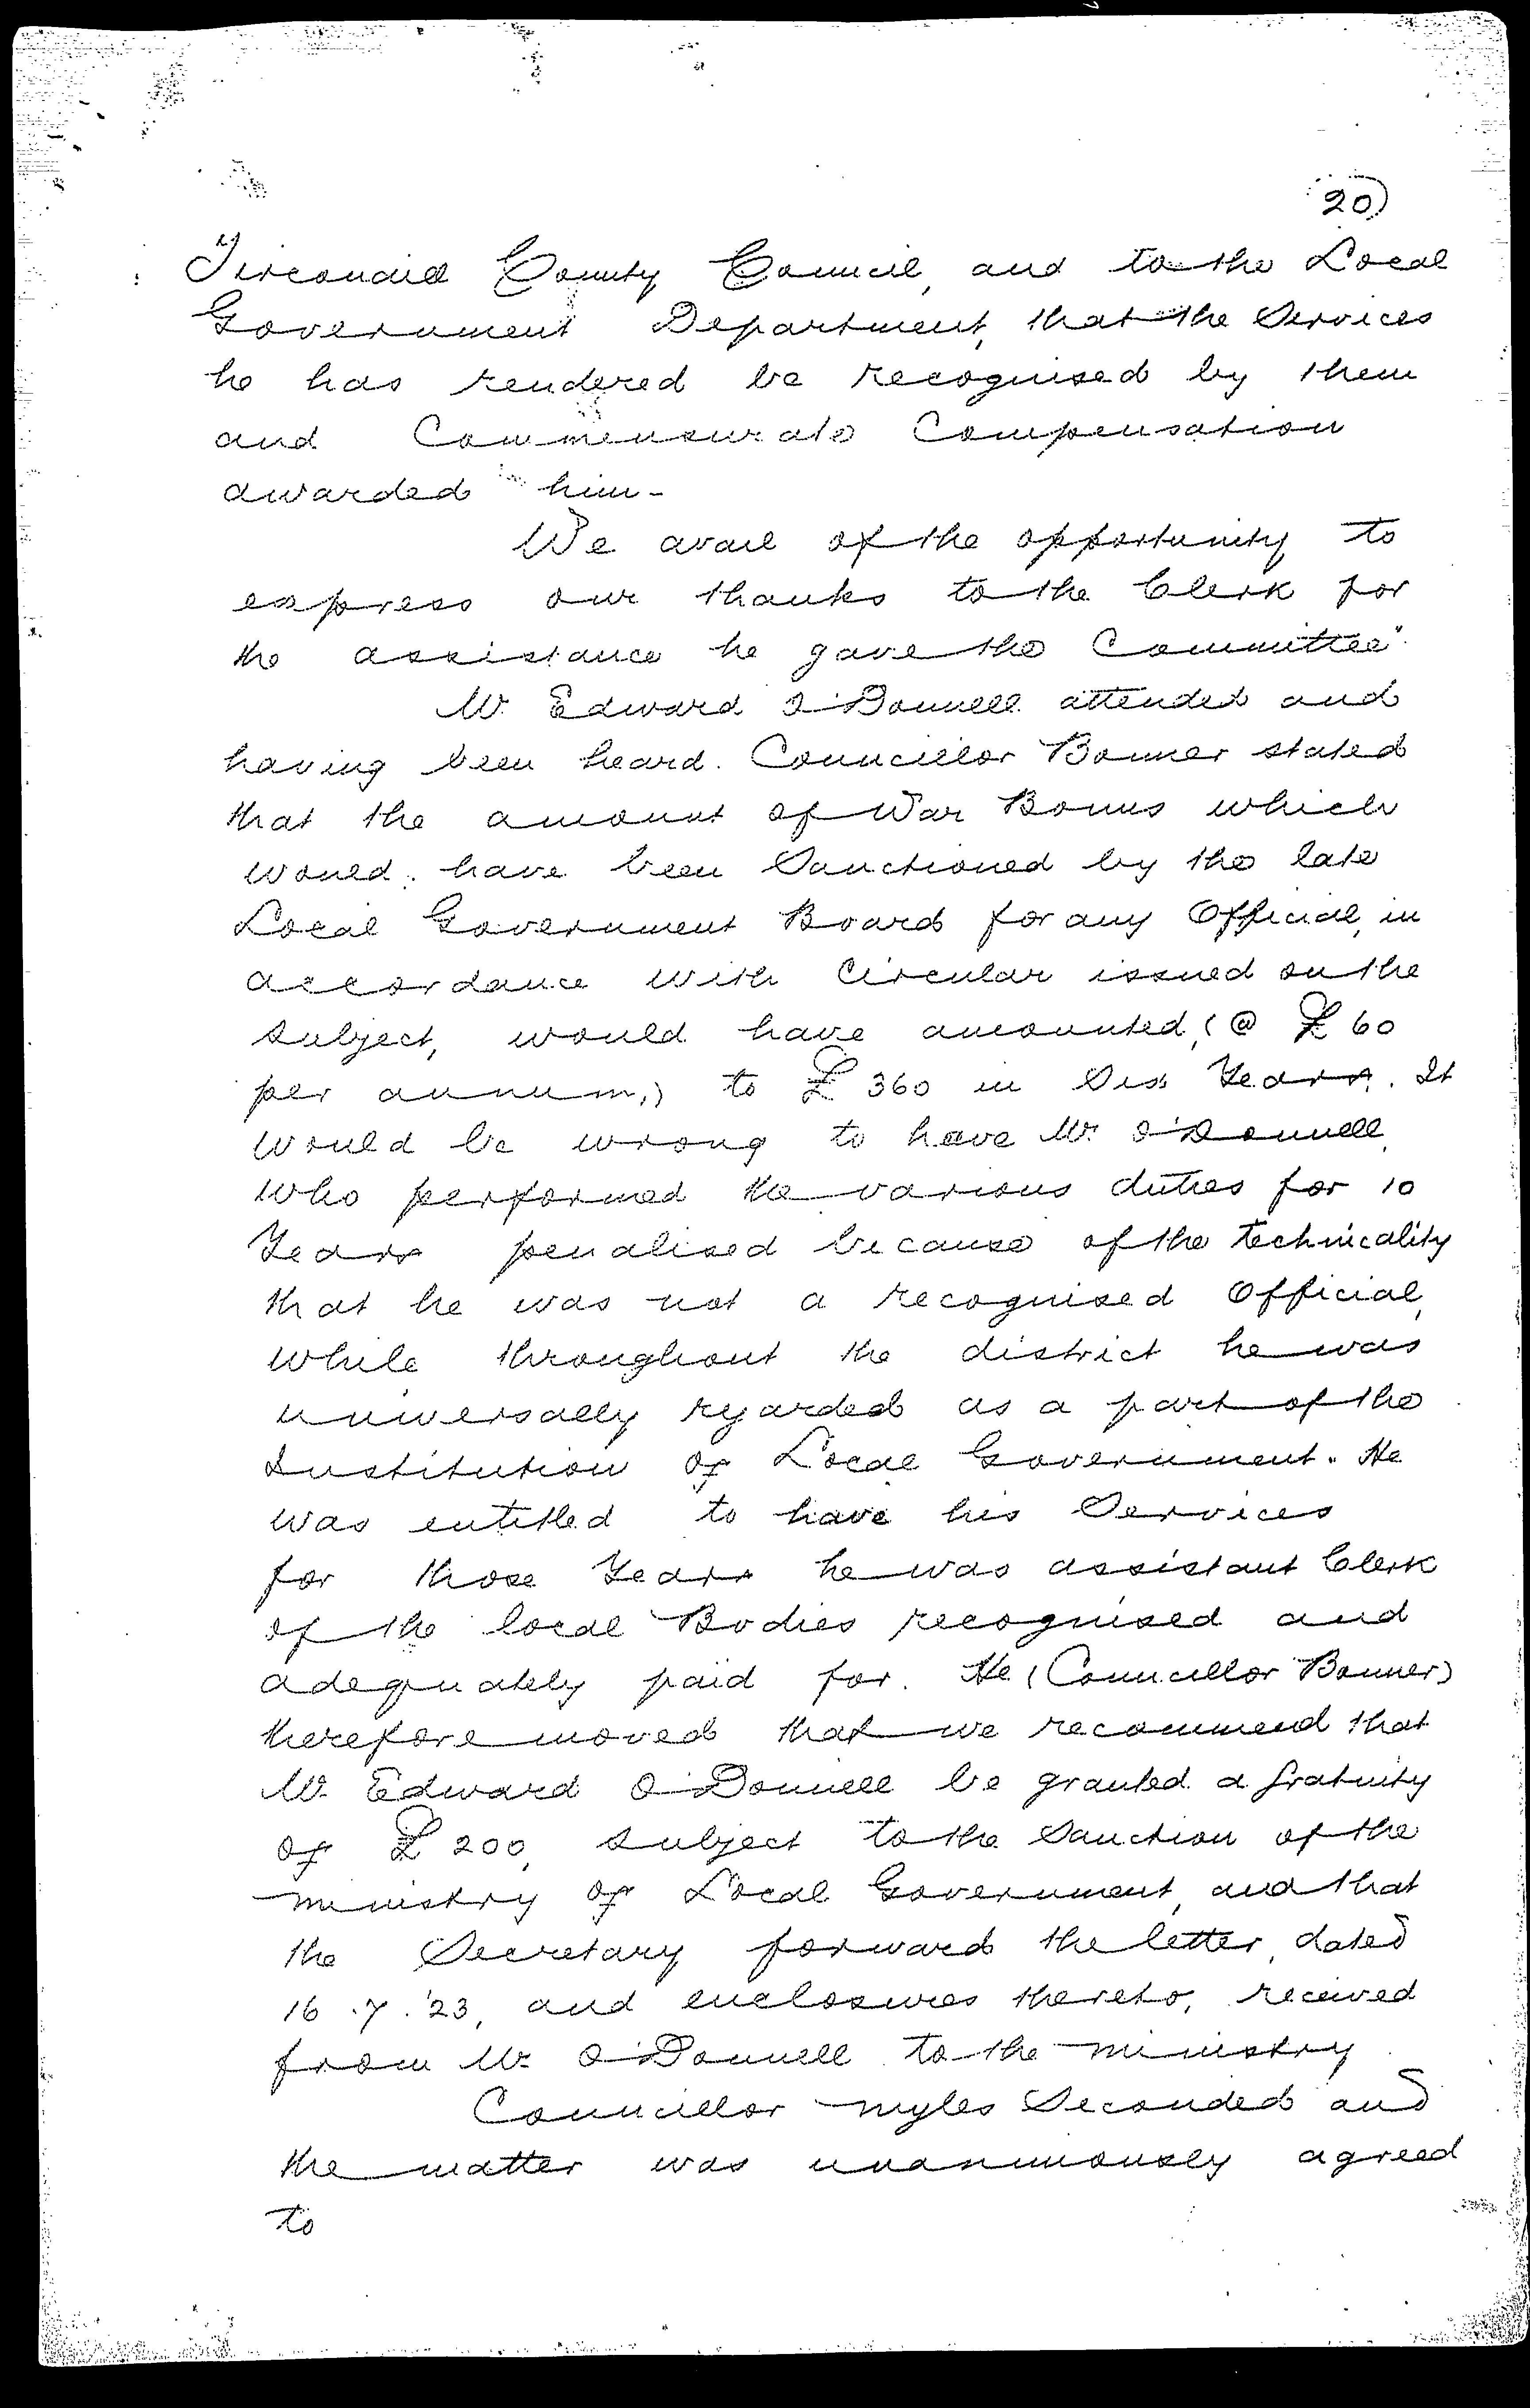 20)
"Tirconaill County Council, and to the Local
Government Department, that the Services
he has rendered be recognised by them
and Commensurate Compensation
awarded him -
We avail of the opportunity to
express our thanks to the Clerk for
the assistance he gave the Committee".
Mr. Edward O'Donnell attended and
having been heard. Councillor Bonner stated
that the amount of War Bonus which
would have been Sanctioned by the late
Local Government Board for any Official, in
accordance with Circular issued on the
subject, would have amounted, (@ £60
per annum,) to £360 in Six Years. It
would be wrong to have Mr. O'Donnell,
who performed the various duties for 10
Years penalised because of the technicality
that he was not a recognised Official,
while throughout the district he was
universally regarded as a part of the
Institution of Local Government. He
was entitled to have his Services
for those Years he was assistant Clerk
of the local Bodies recognised and
adequately paid for. He (Councillor Bonner)
therefore moved that we recommend that
Mr. Edward O'Donnell be granted a gratuity
of £200, subject to the Sanction of the
Ministry of Local Government, and that
the Secretary forward the letter, dated
16.7.'23, and enclosures thereto, received
from Mr. O'Donnell to the Ministry.
Councillor Myles Seconded and
the matter was unanimously agreed
to